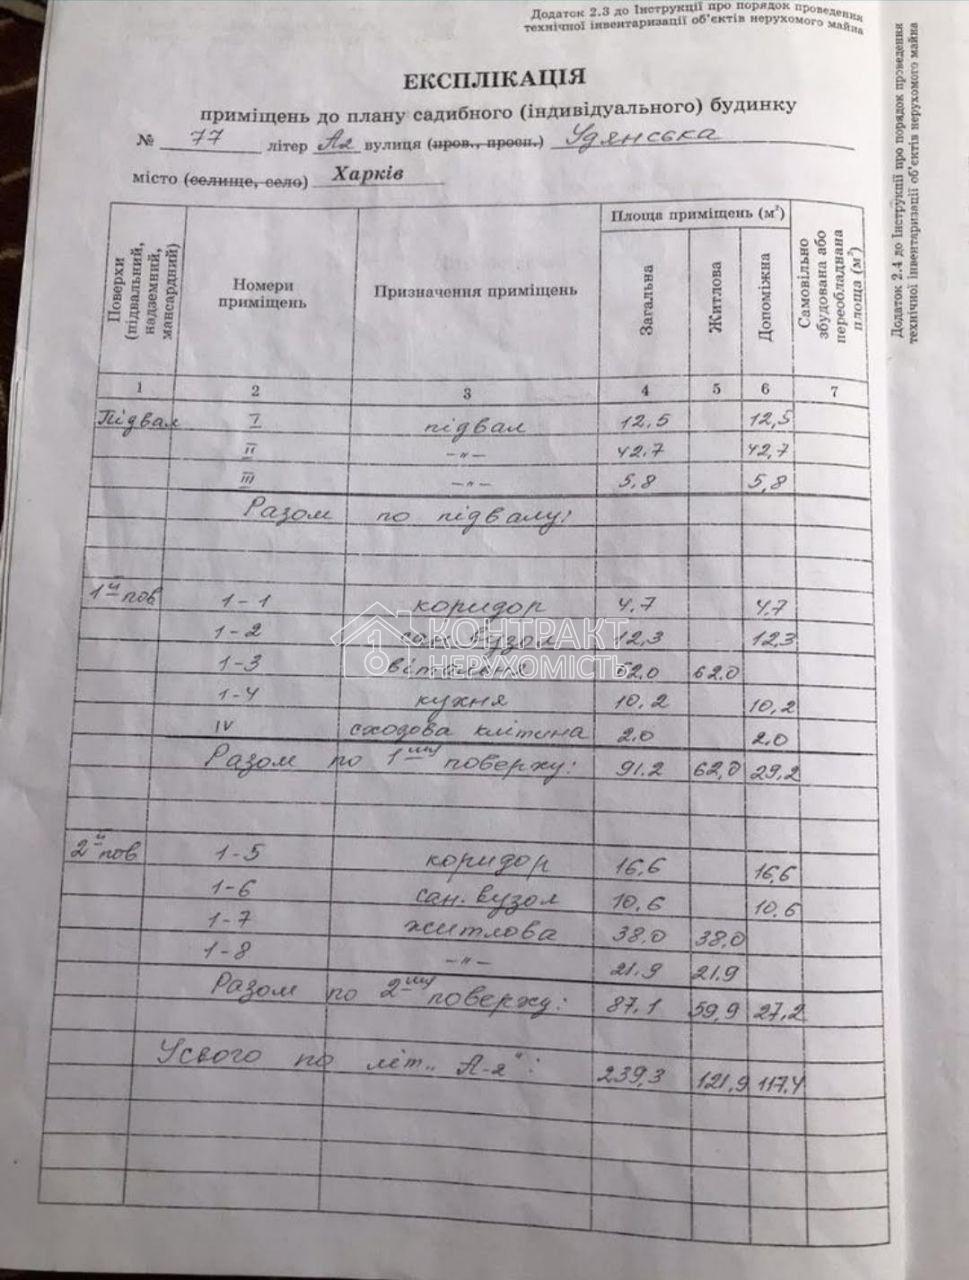 Додаток 2.3 до Інструкції про порядок проведення
технічної інвентаризації об'єктів нерухомого майна
ЕКСПЛІКАЦІЯ
приміщень до плану садибного (індивідуального) будинку
№ 77 літер Ая вулиця (пров., просп.) Удянська
місто (селище, село) Харків
Поверхи (підвальний, надземний, мансардний) Номери приміщень Призначення приміщень Площа приміщень (м²) Загальна Житлова Допоміжна Самовільно збудована або переобладнана площа (м²)
1 2 3 4 5 6 7
Підвал I підвал 12,5 12,5
II –"– 42.7 42,7
III –"– 5,8 5,8
Разом по підвалу:
1й пов 1-1 коридор 4.7 4.7
1-2 сан. вузол 12,3 12,3
1-3 вітальня 62,0 62,0
1-4 кухня 10,2 10,2
IV сходова клітина 2.0 2.0
Разом по 1му поверху: 91.2 62,0 29,2
2й пов 1-5 коридор 16,6 16,6
1-6 сан. вузол 10.6 10.6
1-7 житлова 38,0 38,0
1-8 –"– 21.9 21.9
Разом по 2му поверху: 87.1 59,9 27,2
Усього по літ. „А-я": 239,3 121,9 117.4
Додаток 2.4 до Інструкції про порядок проведення
технічної інвентаризації об'єктів нерухомого майна
КОНТРАКТ
НЕРУХОМІСТЬ